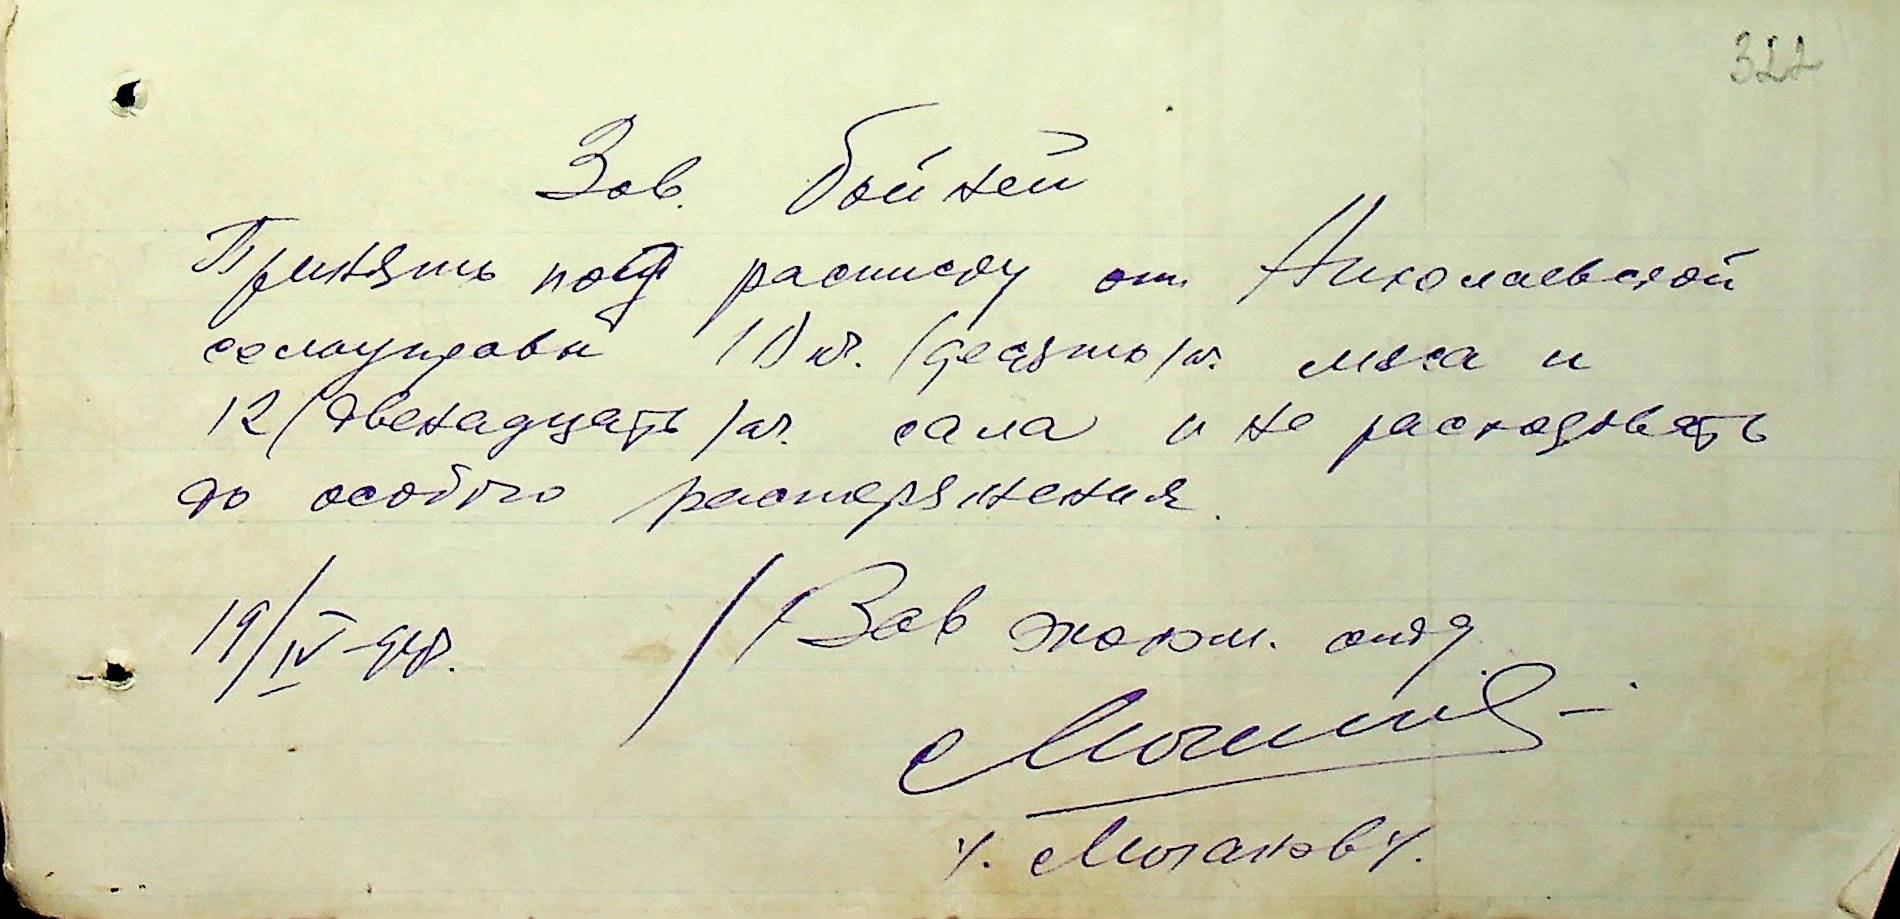 322
Зав. бойней
Принять под расписку от Николаевской
селоуправы 10 кг. /десять/ кг. мяса и
12 /двенадцать/ кг. сала и не расходовать
до особого распоряжения.
19/IV
Зав эконом. отд